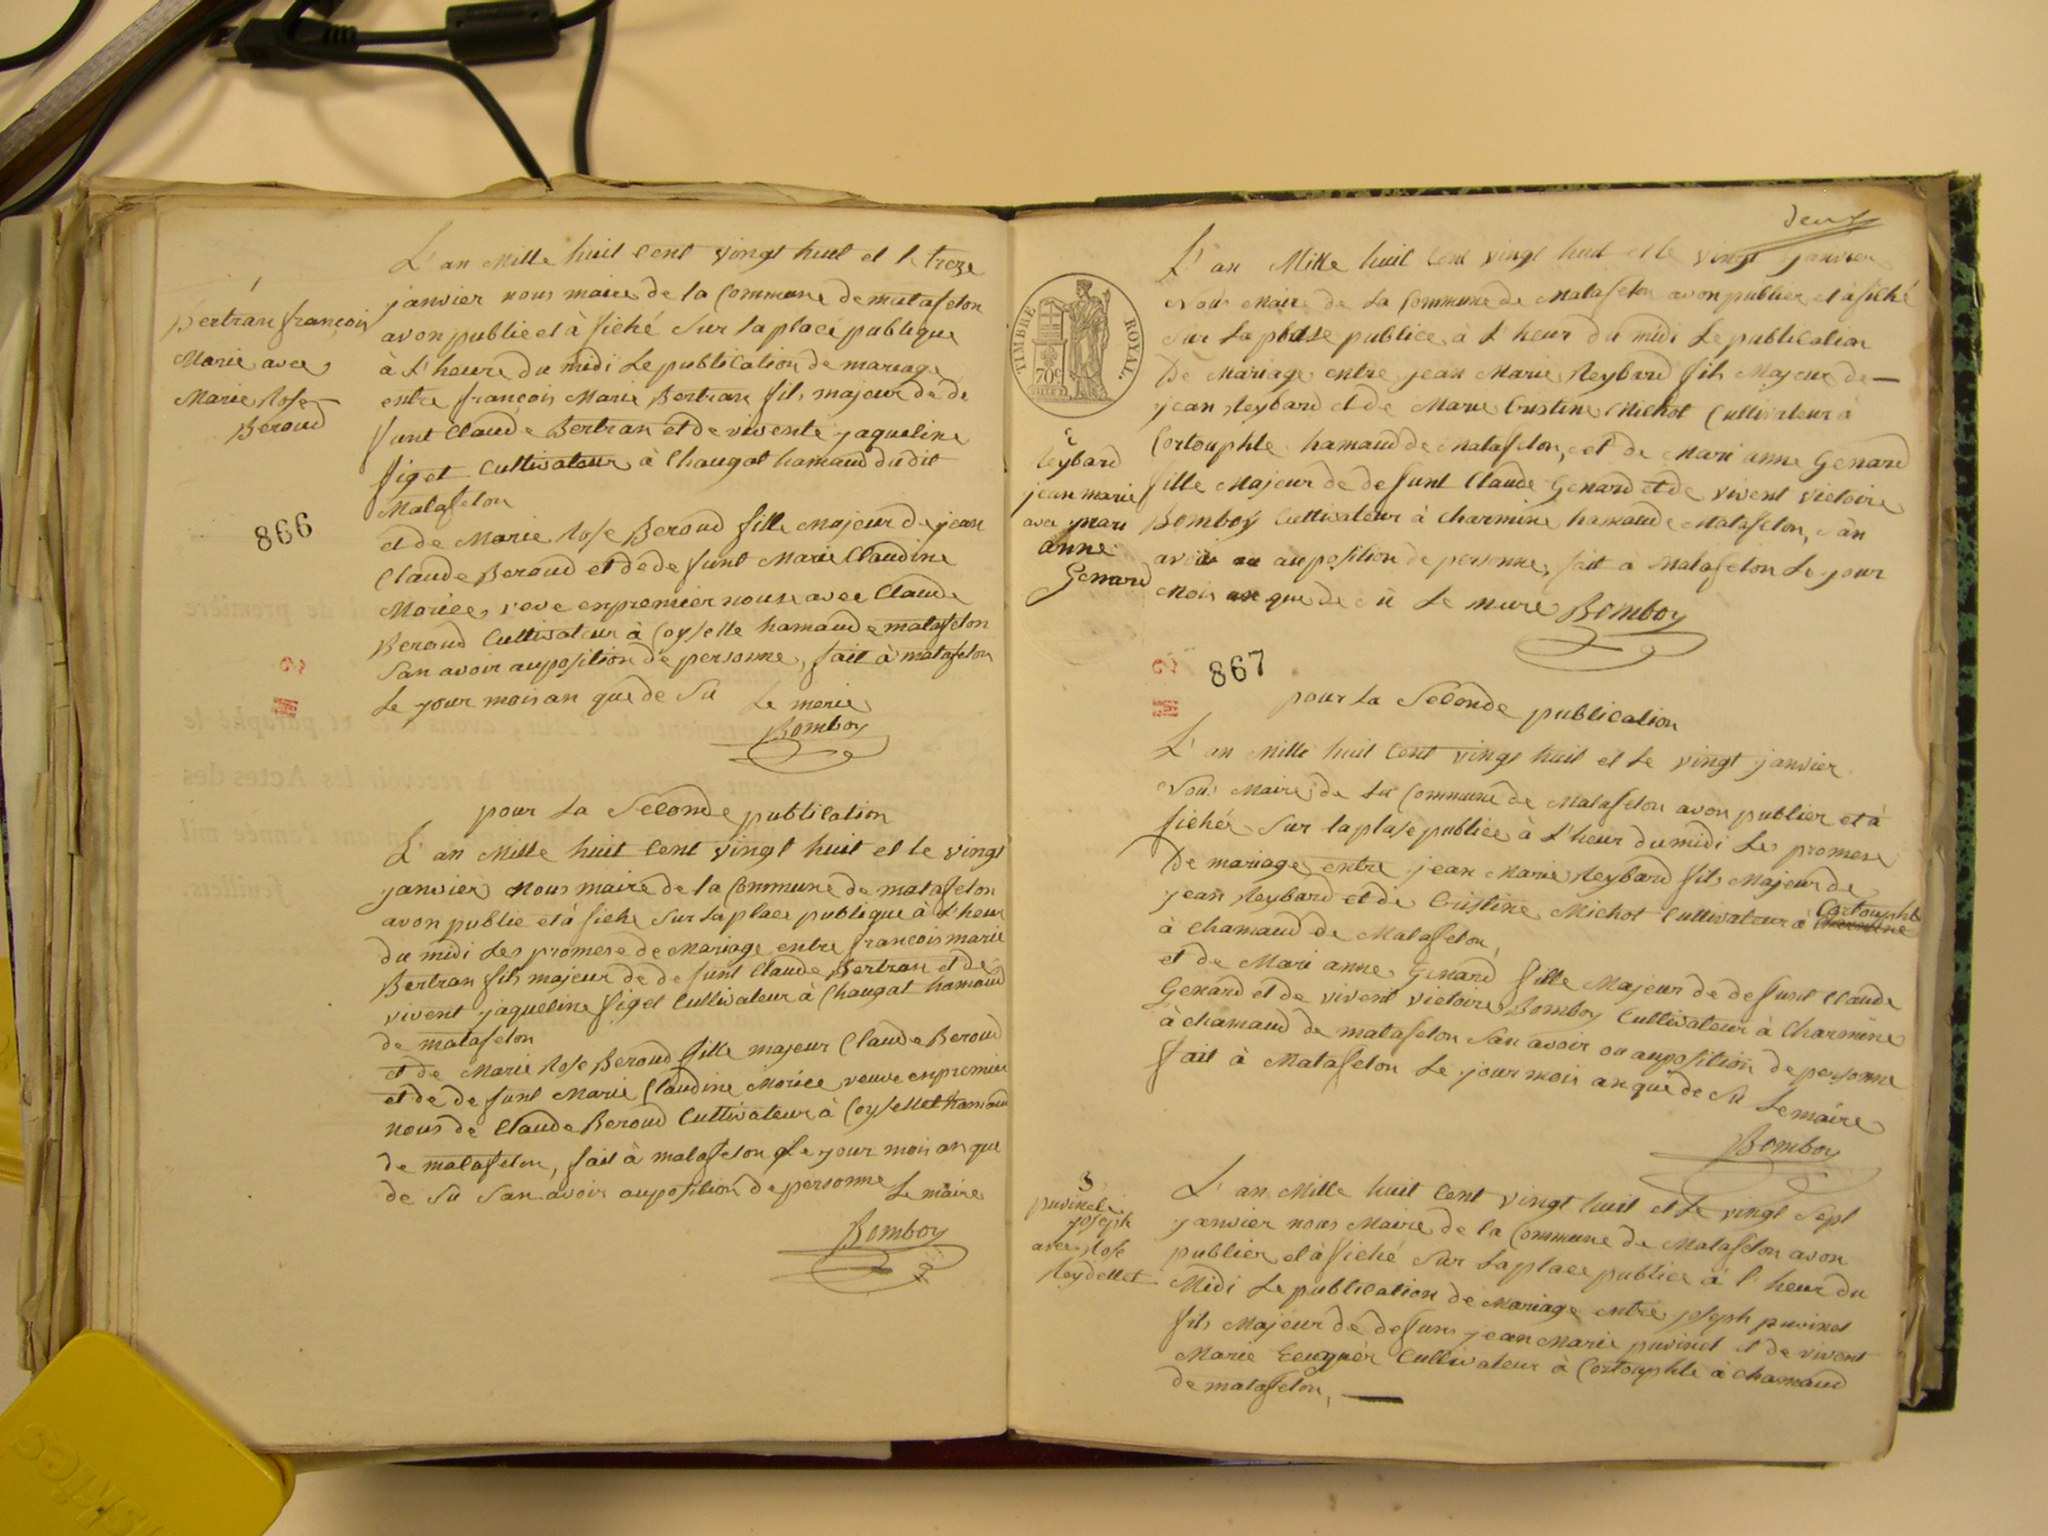 1
Bertran françois
Marie avec
Marie Rose
Beroud
866
L'an Mille huit Cent vingt huit et le treze
janvier nous maire de la Commune de matafelon
avon publie et à fiché Sur la place publique
à L'heure du midi Le publication de mariage
entre françois Marie Bertran fils majeur de de
funt Claude Bertran et de vivente jaqueline
figet Cultivateur à Chaugat hamaud du dit
Matafelon
et de Marie Rose Beroud fille Majeur de jean
Claude Beroud et de de funt Marie Claudine
Moriee, veve en premier nouse avec Claude
Beroud Cultivateur à Coyselle hamaude matafelon
San avoir auposition de personne, fait à matafelon
Le jour mois an que de Su Le merie
Bomboy
pour La Seconde publication
L'an Mille huit Cent vingt huit et le vingt
janvier nous maire de la Commune de matafelon
avon publie et à fiche Sur la place publique à L'heur
du midi Les promese de Mariage entre francois marie
Bertran fils majeur de de funt Claude Bertran et de
vivent jaqueline figet Cultivateur à Chaugat hamaud
de matafelon
et de Marie Rose Beroud fille majeur Claude Beroud
et de de funt Marie Claudine Moriee veuve en premier
nous de Claude Beroud Cultivateur à Coysellet hamaud
de matafelon, fait à matafelon Le jour mois an que
de Su San avoir auposition de personne Le maire
Bomboy
deux
TIMBRE ROYAL.
70c
2
Reybard
jean marie
avec Mari
anne
Genard
L'an Mille huit Cent vingt huit et le vingt janvier
Nous Maire de La Commune de Matafelon avon publier et à fiché
Sur La plase publice à L'heur du midi Le publication
De Mariage entre jean Marie Reybard fils Majeur de
jean Reybard et de Marie Cristine Michot Cultivateur à
Cortouphle hamaud de Matafelon, et de Mari anne Genard
fille Majeur de de funt Claude Genard et de vivent victoire
Bomboy Cultivateur à Charmine hamaude Matafelon, San
avoir auposition de personne, fait à Matafelon Le jour
Mois an que de Su Le mere Bomboy
867
pour La Seconde publication
L'an Mille huit Cent vingt huit et Le vingt janvier
Nous Maire de La Commune de Matafelon avon publier et à
fiché Sur la plase publice à L'heur du midi Les promese
De mariage entre jean Marie Reybard fils Majeur de
jean Reybard et de Cristine Michot Cultivateur à Cortouphle
à Chamaud de Matafelon,
et de Mari anne Genard fille Majeur de de funt Claude
Genard et de vivent victoire Bomboy Cultivateur à Charmine
à Chamaud de matafelon San avoir ou auposition de personne
fait à Matafelon Le jour mois an que de Su Le maire
Bomboy
3
puvinet
joseph
avec Rose
Reydellet
L'an Mille huit Cent vingt huit et Le vingt Sept
janvier nous Maire de la Commune de Matafelon avon
publier et à fiché Sur La place publice à l'heur du
Midi Le publication de Mariage entre joseph puvinet
fils Majeur de de funt jean Marie puvinet et de vivent
Marie Cultivateur à Cortouphle à Chamaud
de matafelon,